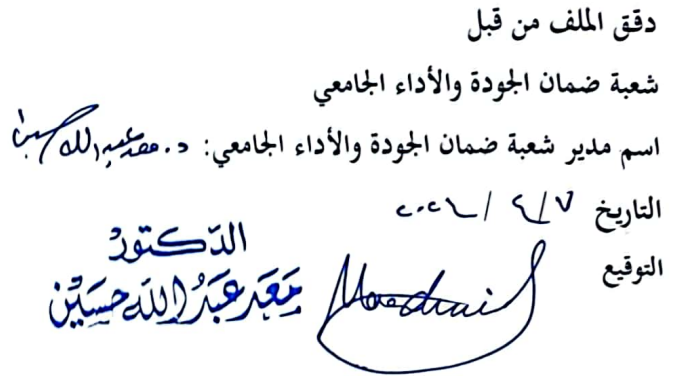 دقق الملف من قبل
شعبة ضمان الجودة والأداء الجامعي
اسم مدير شعبة ضمان الجودة والأداء الجامعي: د. معد عبدالله حسين
التاريخ ٧ / ٤ /
التوقيع
الدكتور
معد عبد الله حسين